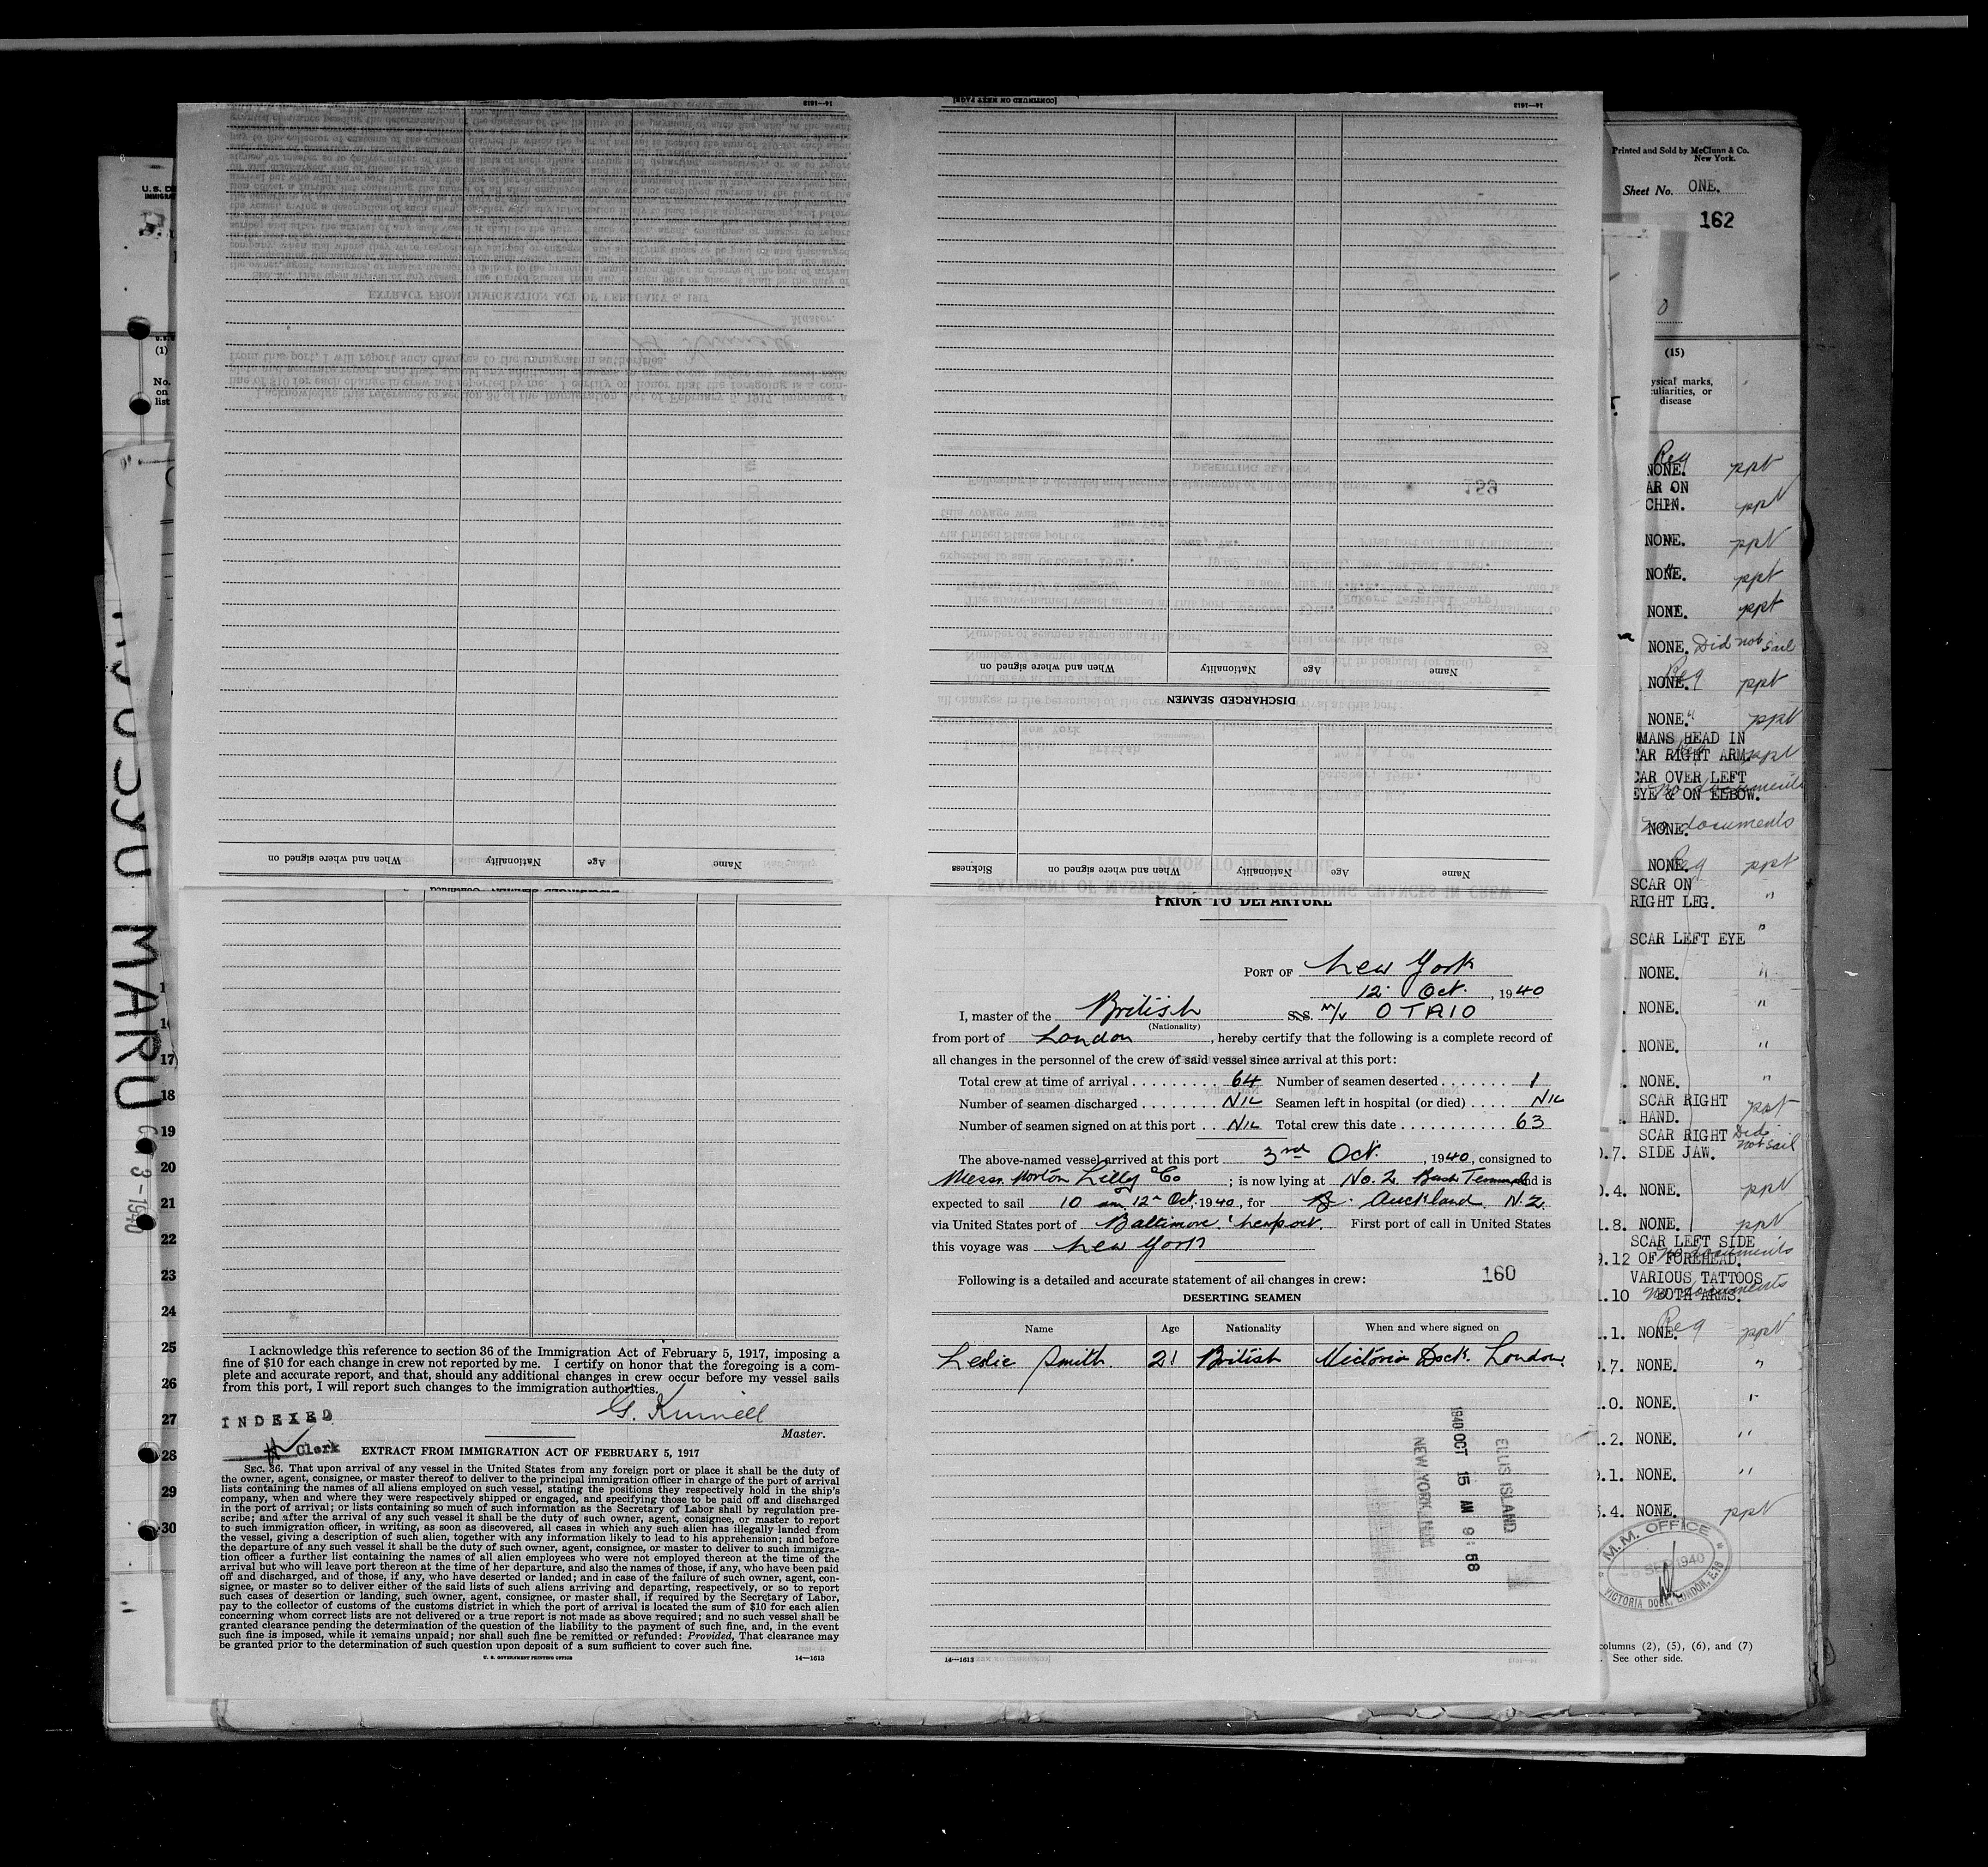 Printed and Sold by McClunn & Co.
New York.
Sheet No. ONE.
162
(15)
disease
Req
NONE. ppt
AR ON
CHIN. ppt
NONE. ppt
NONE. ppt
NONE. ppt
NONE. Did not sail
Req
NONE. ppt
NONE. " ppt
OMANS HEAD IN
CAR RIGHT ARM. ppt
CAR OVER LEFT
EYE & ON ELBOW. No documents
NONE. No documents
NONE. Req ppt
SCAR ON
RIGHT LEG. "
SCAR LEFT EYE "
NONE. "
NONE. "
NONE. "
NONE. "
SCAR RIGHT
HAND. ppt
SCAR RIGHT Did
0.7. SIDE JAW. not sail
0.4. NONE. ppt
1.8. NONE. ppt
SCAR LEFT SIDE
9.12 OF FOREHEAD. No documents
VARIOUS TATTOOS
1.10 BOTH ARMS. No documents
1.1. NONE. Req ppt
0.7. NONE. "
1.0. NONE. "
1.2. NONE. "
0.1. NONE. "
3.4. NONE. ppt
M.M. OFFICE
SEP 1940
VICTORIA DOCK, LONDON, E.16
columns (2), (5), (6), and (7)
See other side.
(1)
No.
on
list
SYU MARU
3-1940
17
18
19
20
21
22
23
24
25
26
27
28
29
30
14—1613
[CONTINUED ON NEXT PAGE]
14—1613
DISCHARGED SEAMEN
Name Age Nationality When and where signed on
Name Age Nationality When and where signed on Sickness
Name Age Nationality When and where signed on
PRIOR TO DEPARTURE
PORT OF New York
12 Oct. , 1940
I, master of the British S.S. M/V OTAIO
(Nationality)
from port of London , hereby certify that the following is a complete record of
all changes in the personnel of the crew of said vessel since arrival at this port:
Total crew at time of arrival . . . . . . . . . 64 Number of seamen deserted . . . . . . . 1
Number of seamen discharged . . . . . . . . NIL Seamen left in hospital (or died) . . . . . NIL
Number of seamen signed on at this port . . NIL Total crew this date . . . . . . . . . . . 63
The above-named vessel arrived at this port 3rd Oct. , 1940, consigned to
Messr. Norton Lilly & Co ; is now lying at No. 2 Bush Terminal and is
expected to sail 10 am 12 Oct, 1940, for Auckland N.Z.
via United States port of Baltimore & Newport. First port of call in United States
this voyage was New York
Following is a detailed and accurate statement of all changes in crew: 160
DESERTING SEAMEN
Name Age Nationality When and where signed on
Leslie Smith. 21 British Victoria Dock. London.
1940 OCT 15 AM 9:58
ELLIS ISLAND
14—1613
I acknowledge this reference to section 36 of the Immigration Act of February 5, 1917, imposing a
fine of $10 for each change in crew not reported by me. I certify on honor that the foregoing is a com-
plete and accurate report, and that, should any additional changes in crew occur before my vessel sails
from this port, I will report such changes to the immigration authorities.
G. Kinnell
Master.
INDEXED
Clerk
EXTRACT FROM IMMIGRATION ACT OF FEBRUARY 5, 1917
SEC. 36. That upon arrival of any vessel in the United States from any foreign port or place it shall be the duty of
the owner, agent, consignee, or master thereof to deliver to the principal immigration officer in charge of the port of arrival
lists containing the names of all aliens employed on such vessel, stating the positions they respectively hold in the ship's
company, when and where they were respectively shipped or engaged, and specifying those to be paid off and discharged
in the port of arrival; or lists containing so much of such information as the Secretary of Labor shall by regulation pre-
scribe; and after the arrival of any such vessel it shall be the duty of such owner, agent, consignee, or master to report
to such immigration officer, in writing, as soon as discovered, all cases in which any such alien has illegally landed from
the vessel, giving a description of such alien, together with any information likely to lead to his apprehension; and before
the departure of any such vessel it shall be the duty of such owner, agent, consignee, or master to deliver to such immigra-
tion officer a further list containing the names of all alien employees who were not employed thereon at the time of the
arrival but who will leave port thereon at the time of her departure, and also the names of those, if any, who have been paid
off and discharged, and of those, if any, who have deserted or landed; and in case of the failure of such owner, agent, con-
signee, or master so to deliver either of the said lists of such aliens arriving and departing, respectively, or so to report
such cases of desertion or landing, such owner, agent, consignee, or master shall, if required by the Secretary of Labor,
pay to the collector of customs of the customs district in which the port of arrival is located the sum of $10 for each alien
concerning whom correct lists are not delivered or a true report is not made as above required; and no such vessel shall be
granted clearance pending the determination of the question of the liability to the payment of such fine, and, in the event
such fine is imposed, while it remains unpaid; nor shall such fine be remitted or refunded: Provided, That clearance may
be granted prior to the determination of such question upon deposit of a sum sufficient to cover such fine.
U. S. GOVERNMENT PRINTING OFFICE
14—1613